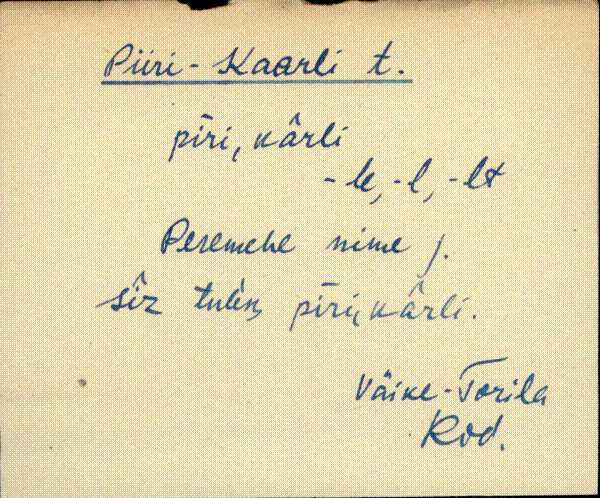 Piiri-Kaarli t.
pīri, kârli
-le, -l, -lt
Peremehe nime j.
sîz tulen, pīri, kârli.
Väike-Torila
Kod.